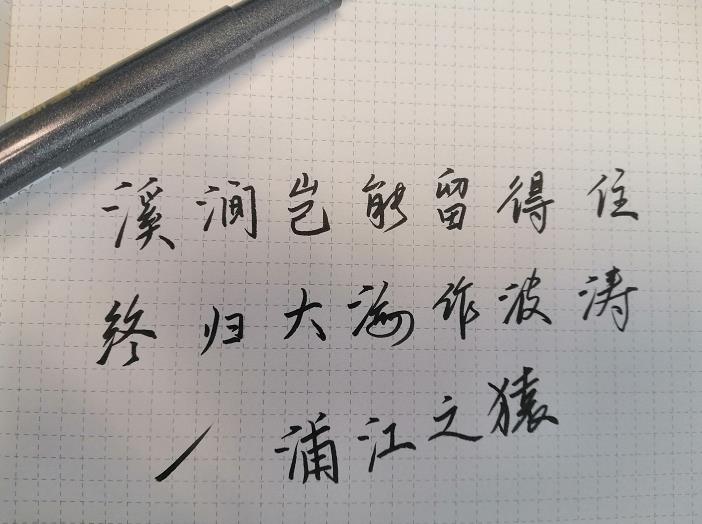 溪涧岂能留得住
终归大海作波涛
/ 浦江之猿